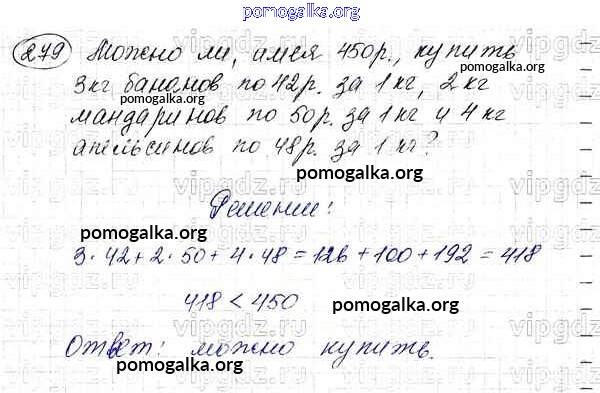 pomogalka.org
279 Можно ли, имея 450р., купить
3кг бананов по 42р. за 1 кг, 2 кг
pomogalka.org
мандаринов по 50р. за 1 кг и 4 кг
апельсинов по 48р. за 1 кг?
pomogalka.org
Решение:
pomogalka.org
3·42+2·50+4·48=126+100+192=418
418<450
pomogalka.org
Ответ: можно купить.
pomogalka.org
vipgdz.ru